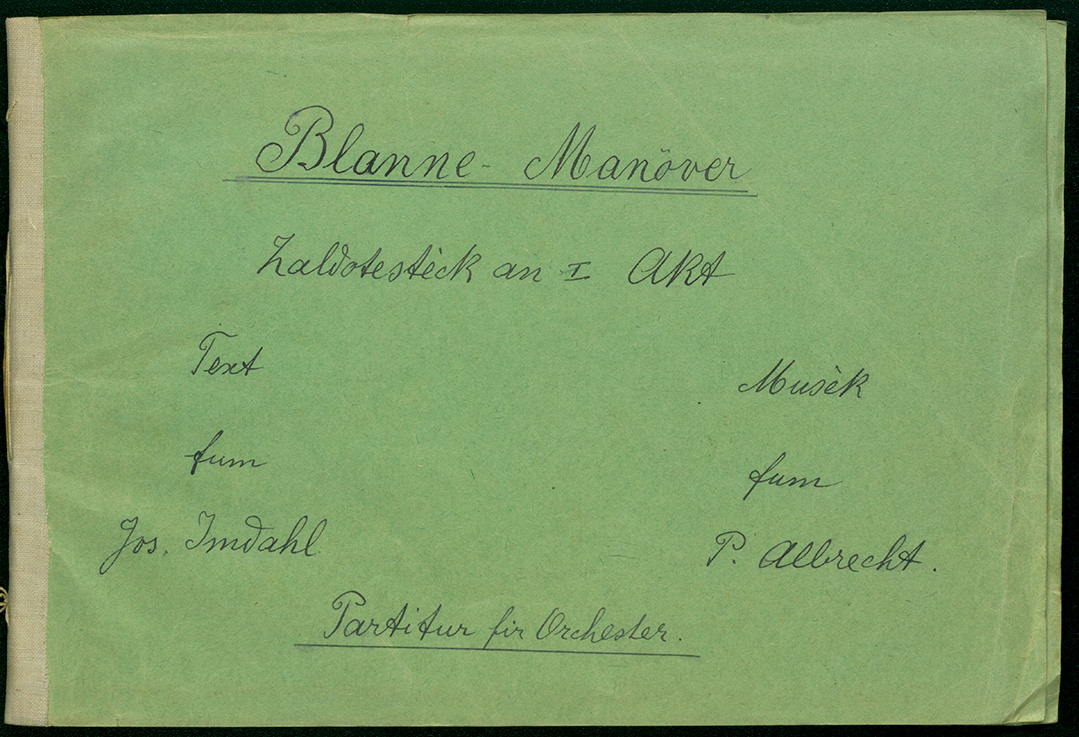 Blanne-Manöver
Zaldotestèck an I Akt
Text
fum
Jos. Imdahl
Musèk
fum
P. Albrecht.
Partitur fir Orchester.